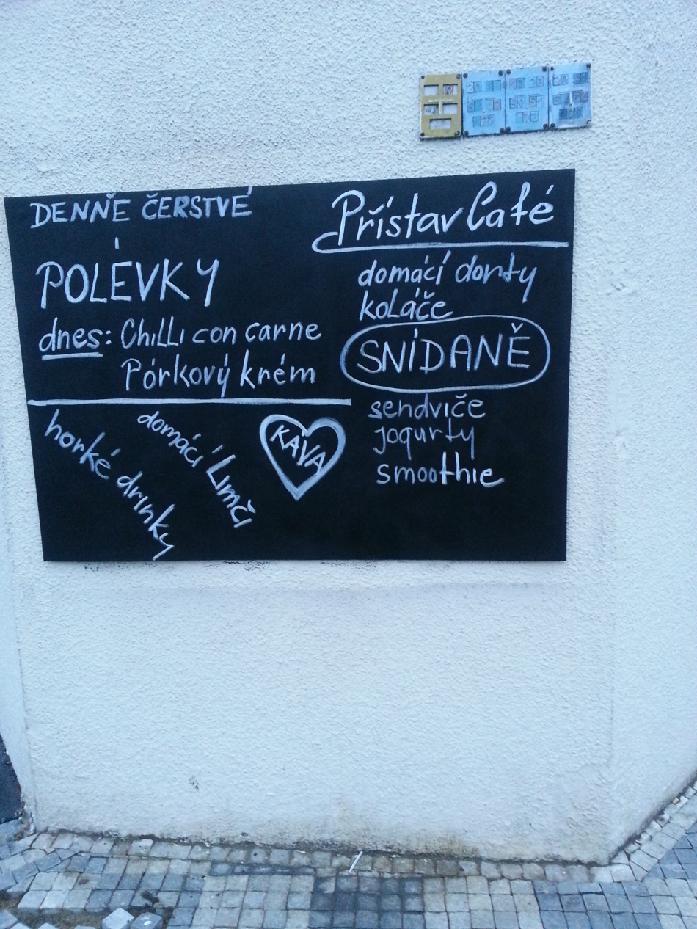 DENNĚ ČERSTVÉ
POLÉVKY
dnes: Chilli con carne
Pórkový krém
horké drinky
domácí Limči
KÁVA
Přístav Café
domácí dorty
koláče
SNÍDANĚ
sendviče
jogurty
smoothie